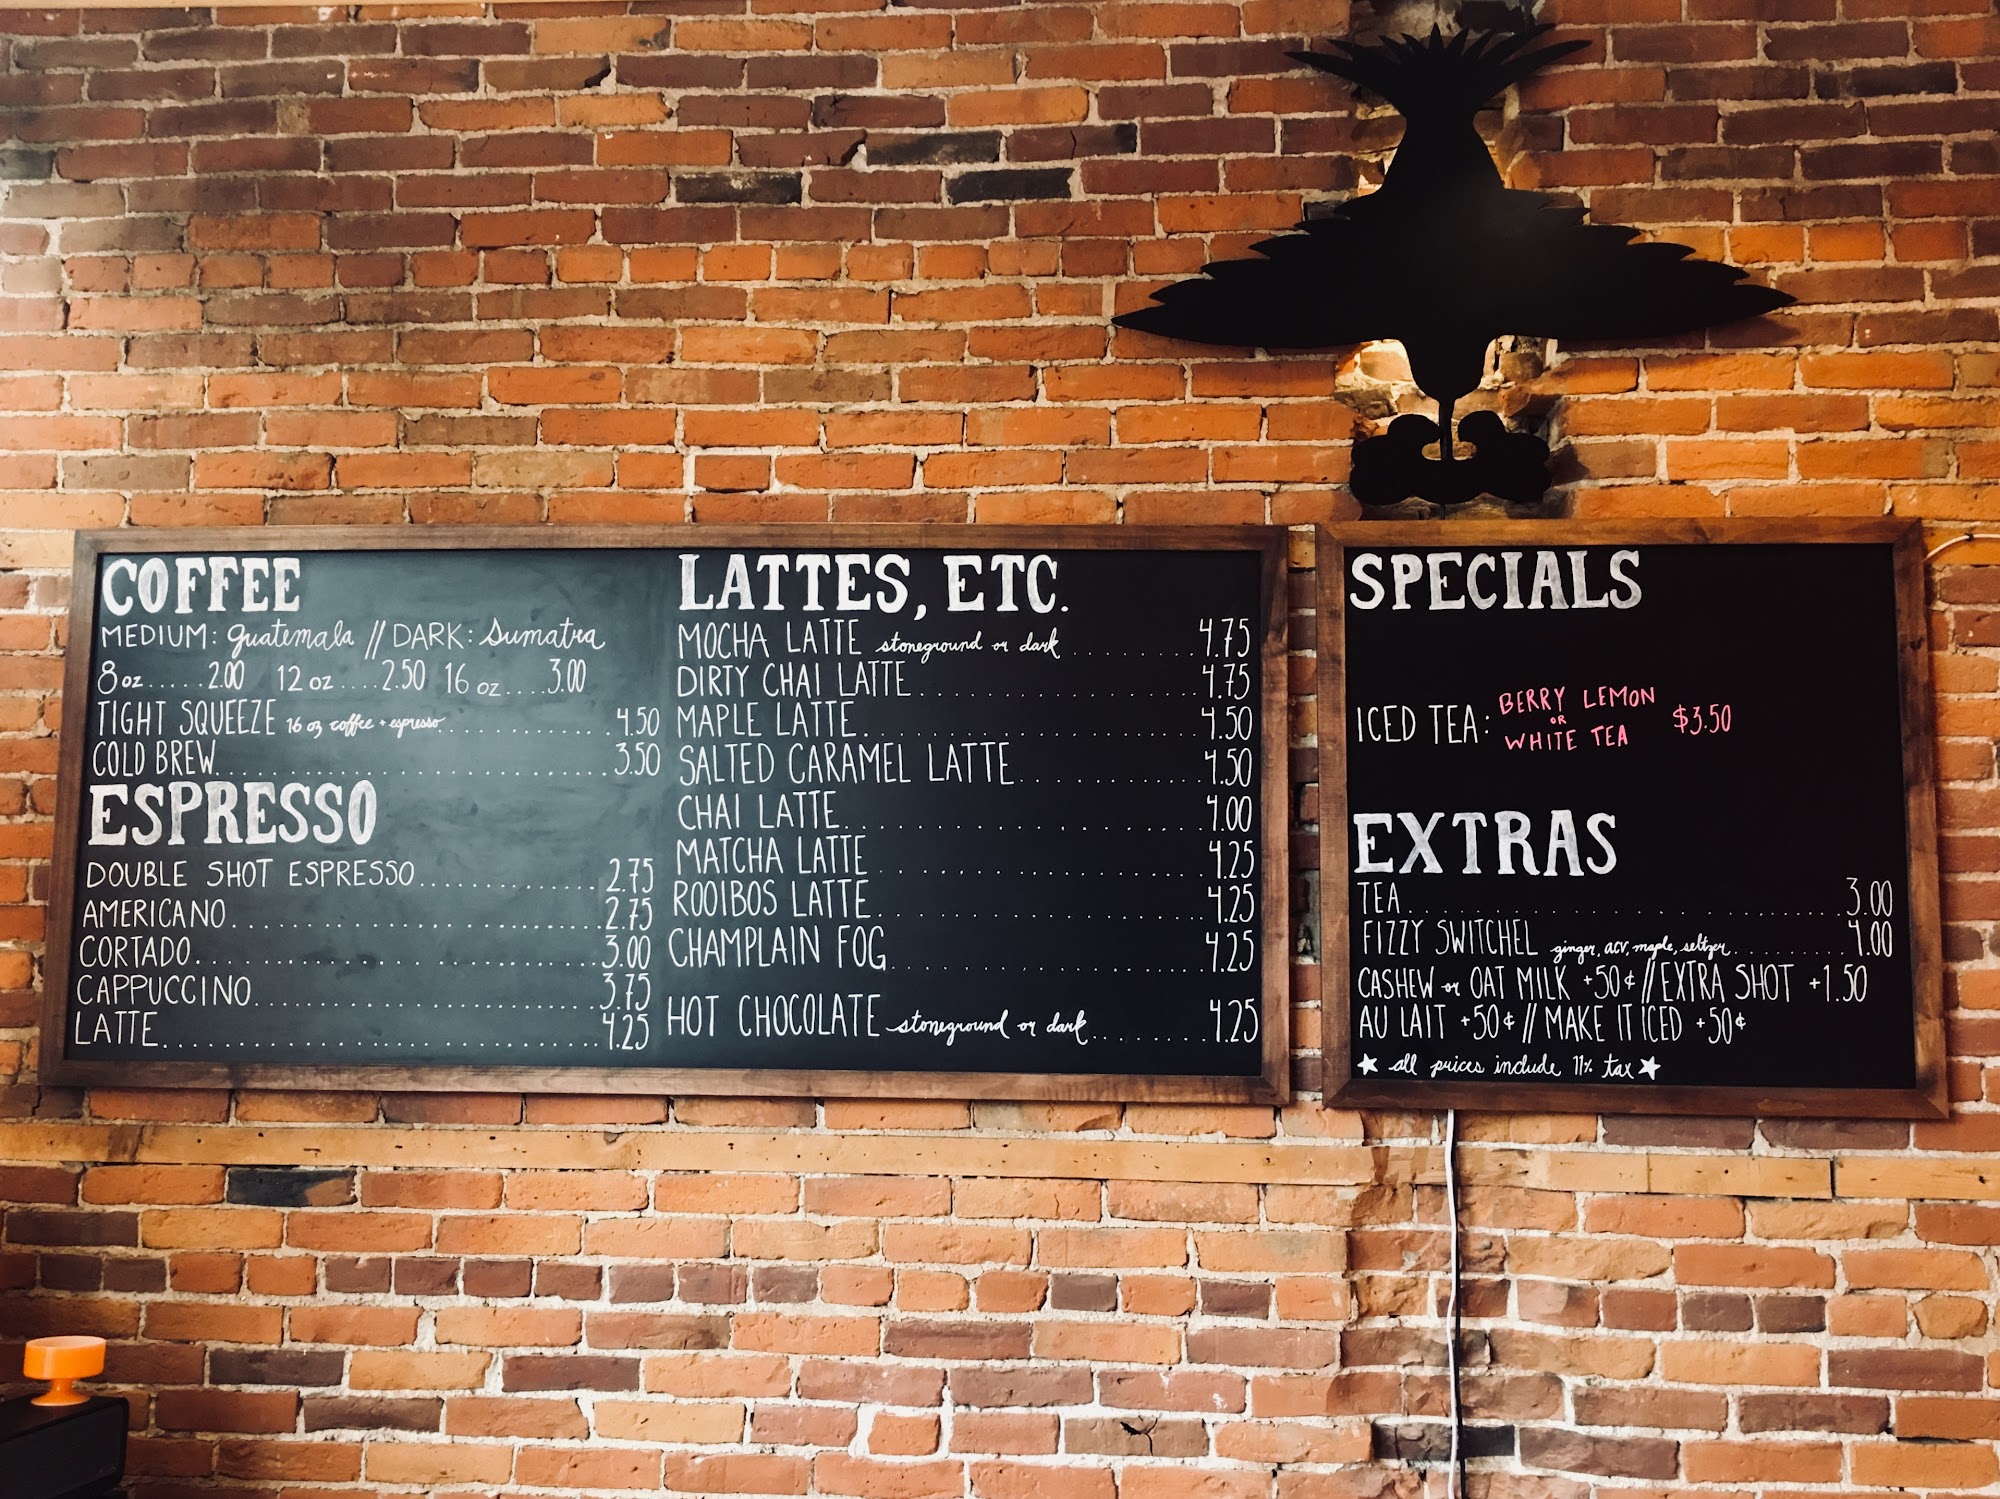 COFFEE
MEDIUM: Guatemala // DARK: Sumatra
8 oz.....2.00 12 oz....2.50 16 oz....3.00
TIGHT SQUEEZE 16 oz coffee + espresso..............4.50
COLD BREW..............3.50
ESPRESSO
DOUBLE SHOT ESPRESSO..............2.75
AMERICANO..............2.75
CORTADO..............3.00
CAPPUCCINO..............3.75
LATTE..............4.25
LATTES, ETC.
MOCHA LATTE stoneground or dark..............4.75
DIRTY CHAI LATTE..............4.75
MAPLE LATTE..............4.50
SALTED CARAMEL LATTE..............4.50
CHAI LATTE..............4.00
MATCHA LATTE..............4.25
ROOIBOS LATTE..............4.25
CHAMPLAIN FOG..............4.25
HOT CHOCOLATE stoneground or dark..............4.25
SPECIALS
ICED TEA: BERRY LEMON
OR
WHITE TEA $3.50
EXTRAS
TEA..............3.00
FIZZY SWITCHEL ginger, acv, maple, seltzer..............4.00
CASHEW or OAT MILK +50¢ // EXTRA SHOT +1.50
AU LAIT +50¢ // MAKE IT ICED +50¢
★ all prices include 11% tax ★